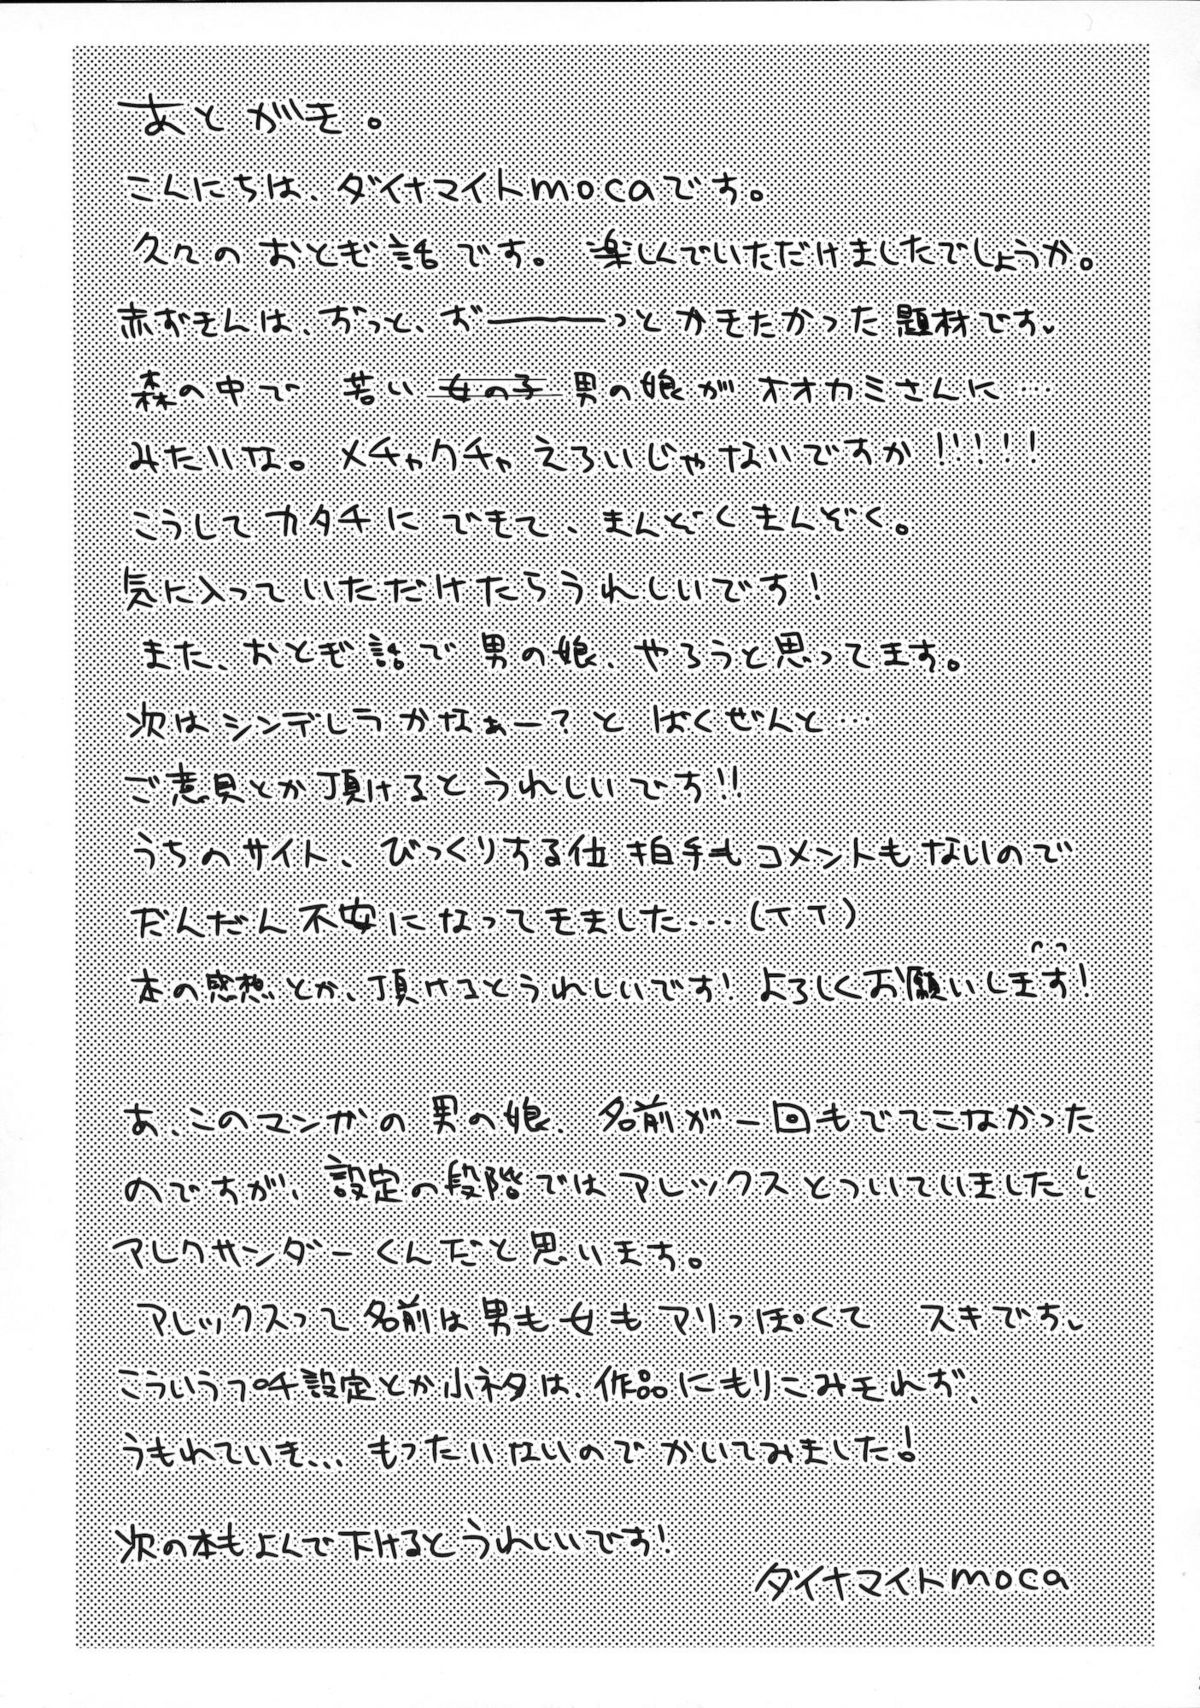 あとがき。
こんにちは、ダイナマイトmocaです。
久々のおとぎ話です。 楽しんでいただけましたでしょうか。
赤ずきんは、ずっと、ず———っとかきたかった題材です。
森の中で 若い 女の子 男の娘が オオカミさんに……
みたいな。メチャクチャえろいじゃないですか!!!!!
こうしてカタチにできて、まんぞくまんぞく。
気に入っていただけたらうれしいです!
また、おとぎ話で男の娘、やろうと思ってます。
次はシンデレラかなぁー?と ばくぜんと……
ご意見とか頂けるとうれしいです!!
うちのサイト、びっくりする位 拍手もコメントもないので
だんだん不安になってきました…(TT)
本の感想とか、頂けるとうれしいです! よろしくお願いします!
あ、このマンガの男の娘、名前が一回もでてこなかった
のですが、設定の段階ではアレックスとついていました。
アレクサンダーくんだと思います。
アレックスって名前は男も女もアリっぽくて スキです。
こういうプチ設定とか小ネタは、作品にもりこみきれず、
うもれていき…もったいないのでかいてみました!
次の本もよんで下けるとうれしいです!
ダイナマイトmoca